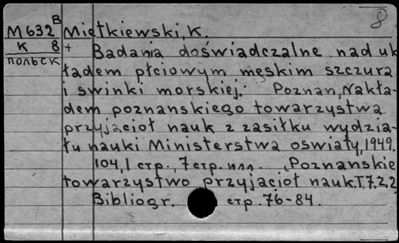 8
М632 В Mietkiewski, K.
К 8 + Badania doświadczalne nad uk
ПОЛЬСК ładem płciowym męskim szczura
i świnki morskiej. Poznań, Nakła-
dem poznańskiego towarzystwa
przyjaciół nauk z zasiłku wydzia-
łu nauki Ministerstwa oświaty, 1949.
104, 1 стр., 7 стр. илл. (Poznańskie
towarzystwo przyjaciół nauk. T. 7. z. 2
Bibliogr. стр. 76-84.